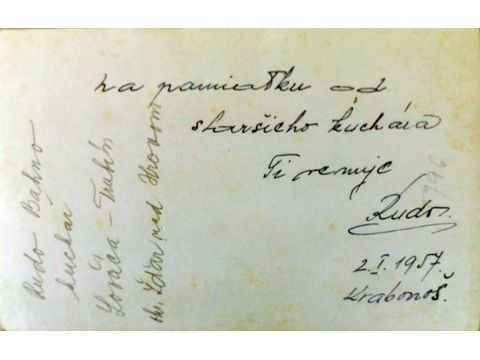 na pamiatku od
staršieho kuchára
Ti venuje
Rudo.
2.I. 1957.
Krabonoš.
Rudo Bahno
kuchár
Lovača - Truhln
nad Hronom
796